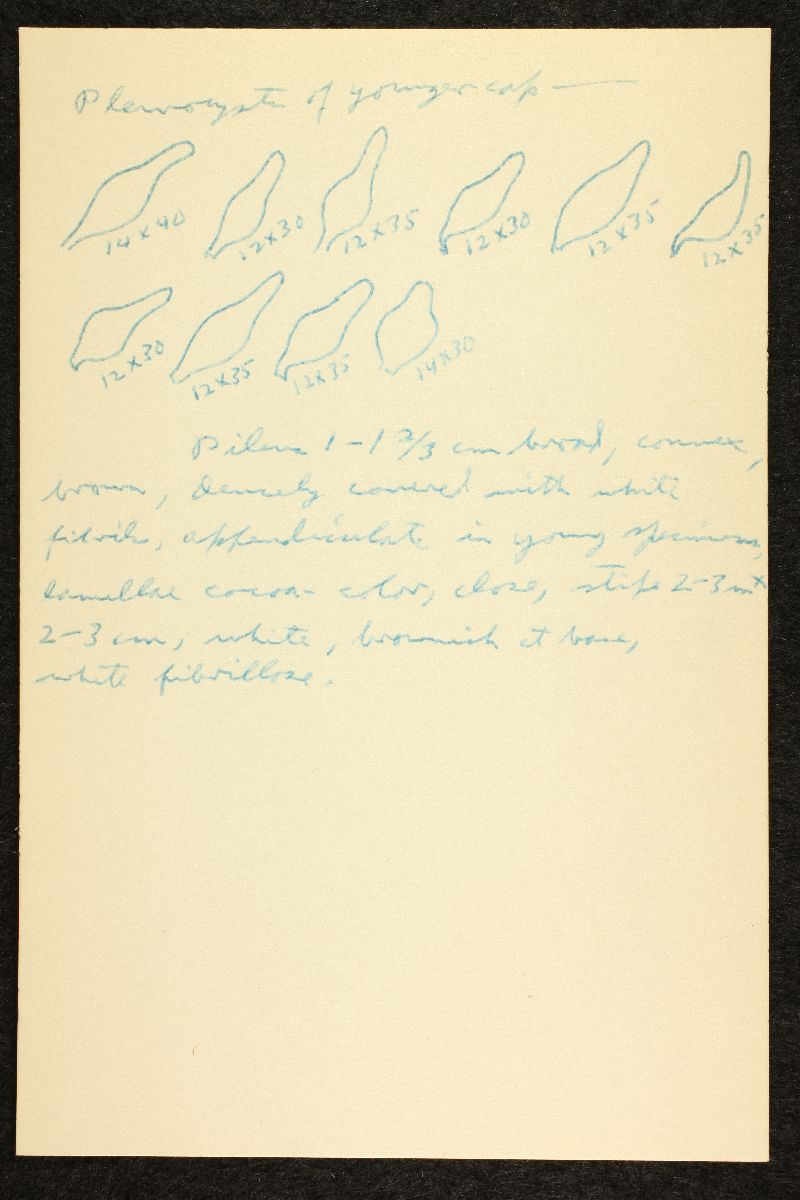 Pleurocyst of younger cap —
14 x 40 12 x 30 12 x 35 12 x 30 12 x 35 12 x 35
12 x 30 12 x 35 12 x 35 14 x 30
Pileus 1 - 1 2/3 cm broad, convex,
brown, densely covered with white
fibrils, appendiculate in young specimens,
lamellae cocoa-color, close, stipe 2-3 m x
2-3 cm, white, brownish at base,
white fibrillose.